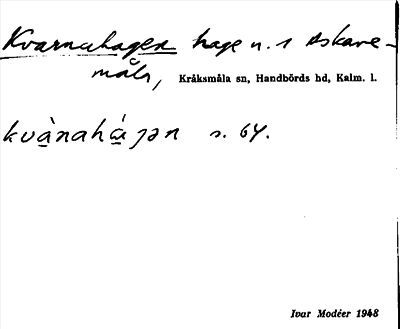 Kvarnahagen hage n. 1 Askare-
måla, Kråksmåla sn, Handbörds hd, Kalm. l.
kvànahájən s. 64.
Ivar Modéer 1948